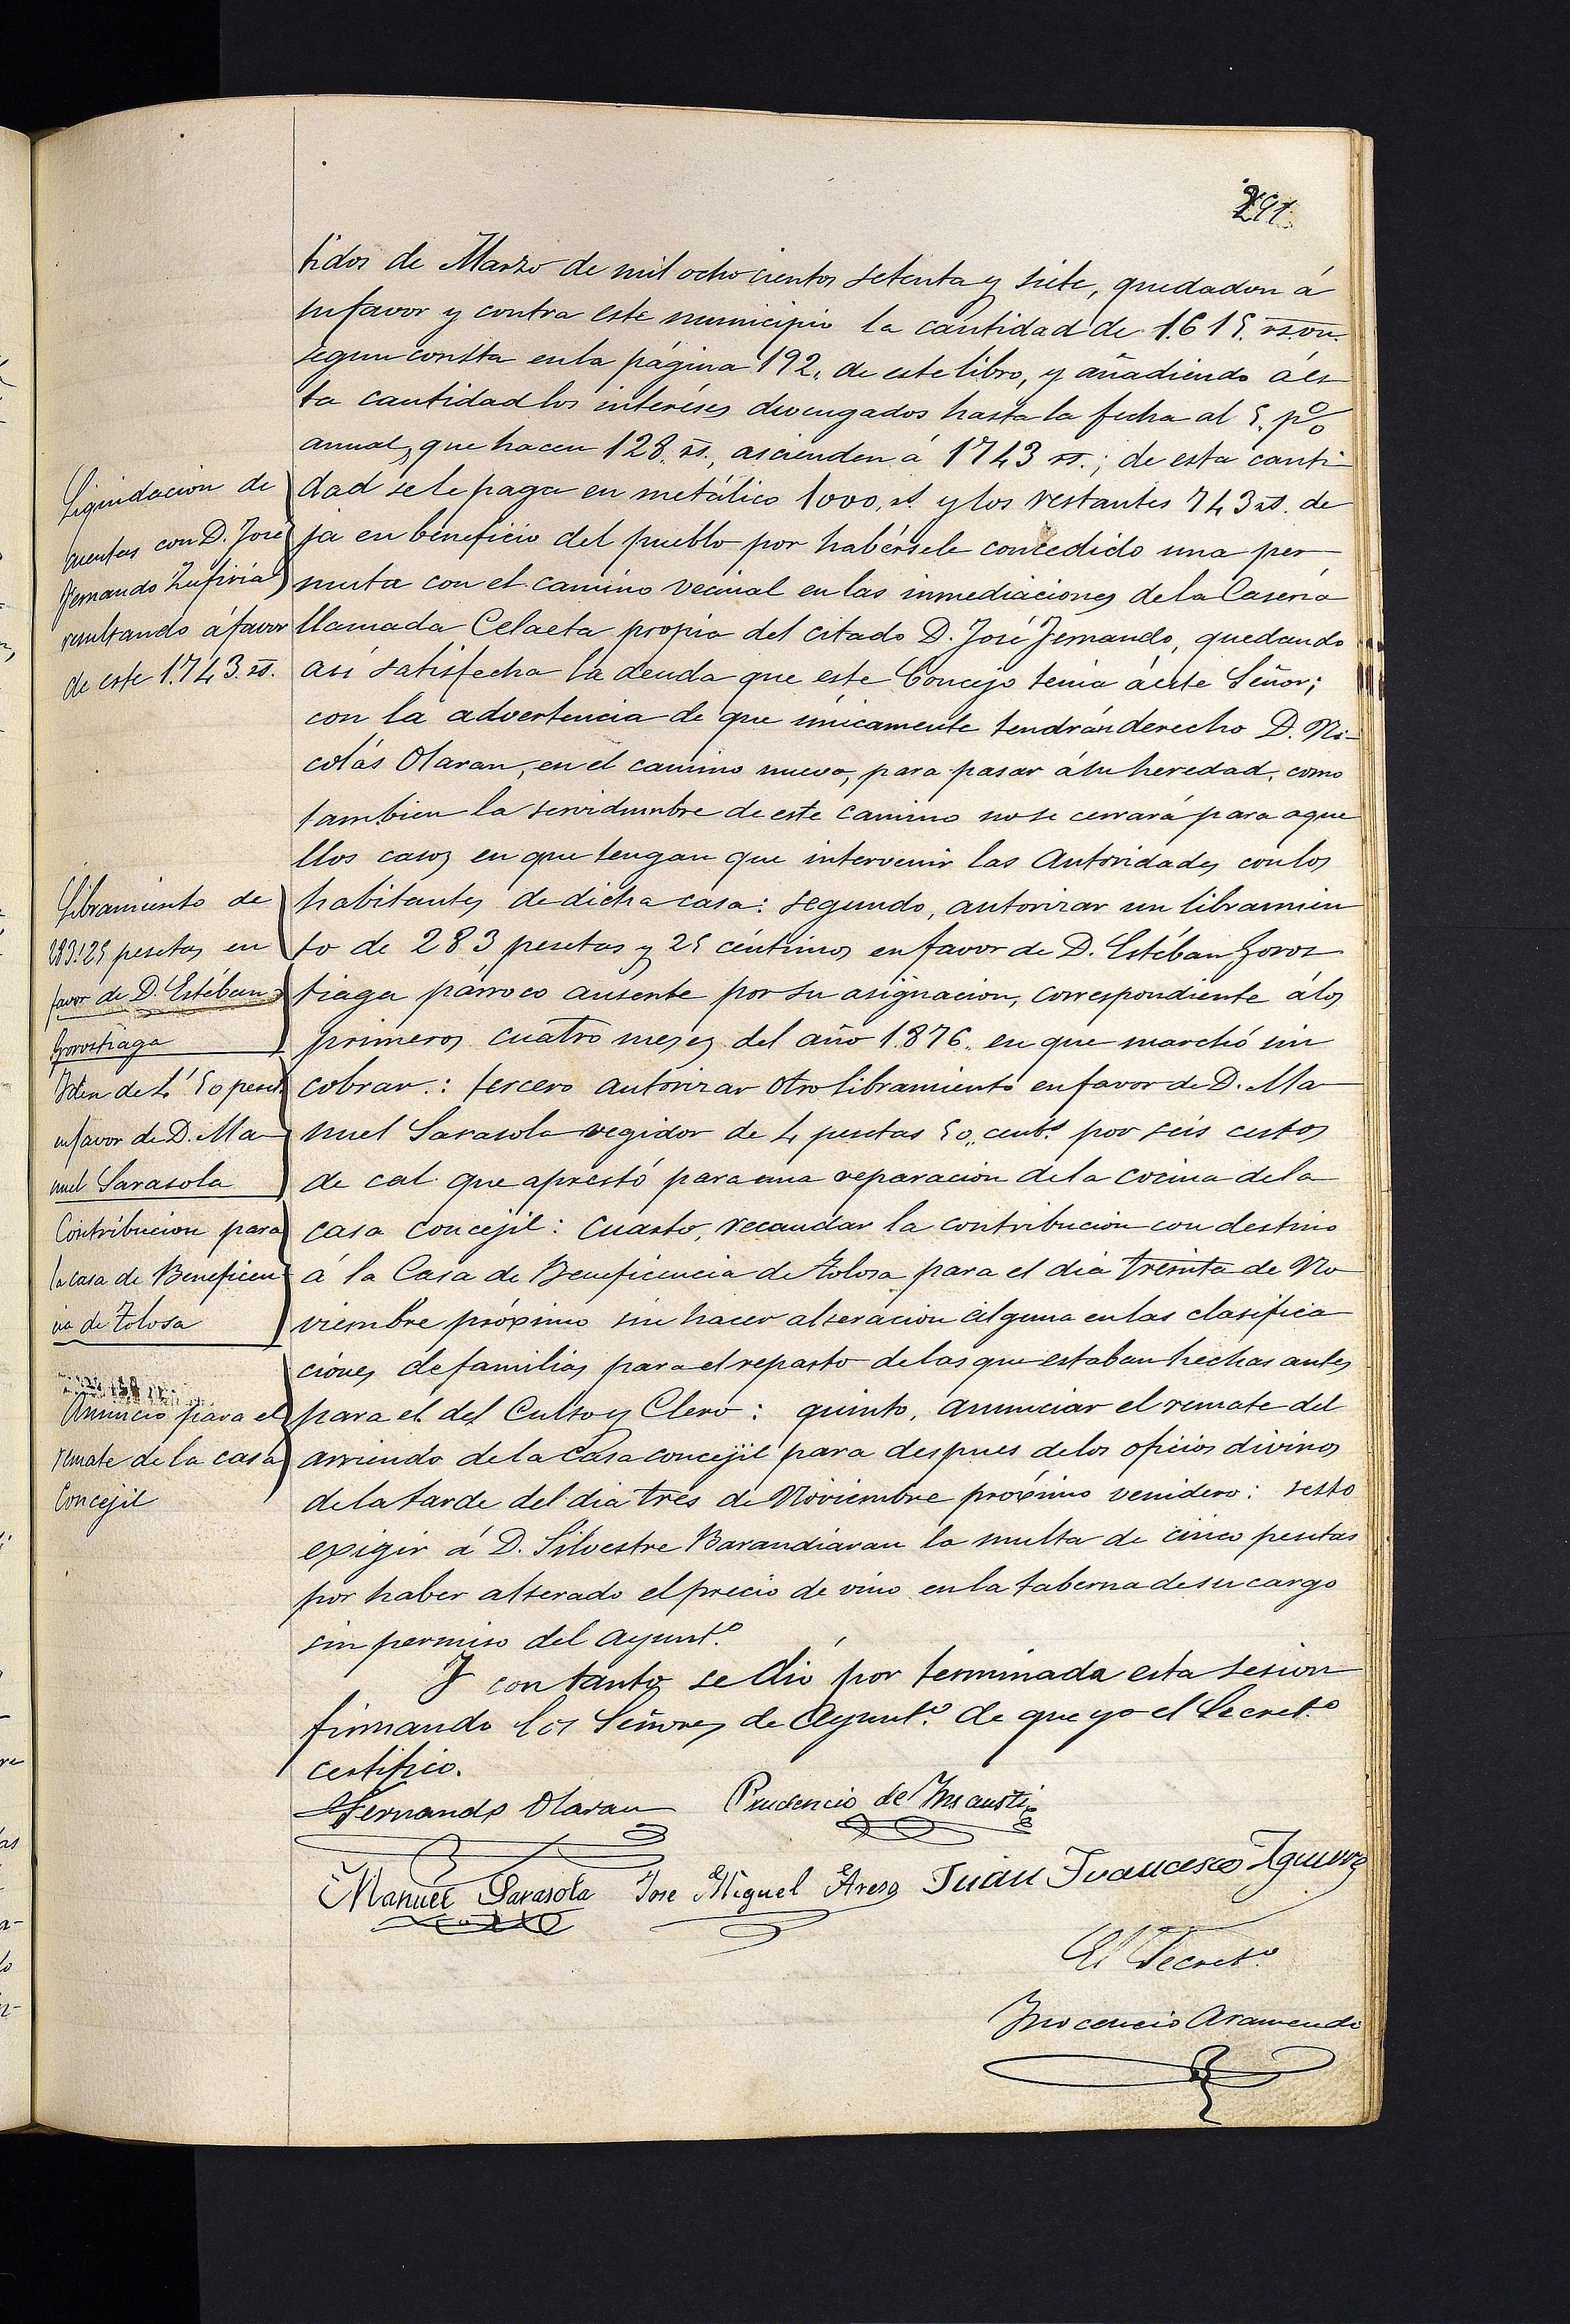 291.
tidos de Marzo de mil ocho cientos setenta y siete, quedadon á
su favor y contra este municipio la cantidad de 1.615. rs. on.
segun consta en la página 192, de este libro, y añadiendo á es
ta cantidad los interéses devengados hasta la fecha al 5. p%
anual, que hacen 128. rs., ascienden á 1743 rs.; de esta canti
dad se le paga en metálico 1000, rs. y los restantes 743 rs. de
ja en beneficio del pueblo por habérsele concedido una per
muta con el camino vecinal en las inmediaciones de la Caseria
llamada Celaeta propia del citado D. José Fernando, quedando
asi satisfecha la deuda que este Concejo tenia á este Señor;
con la advertencia de que únicamente tendrán derecho D. Ni-
colás Olaran, en el camino nuevo, para pasar á su heredad, como
tambien la servidumbre de este camino no se cerrará para aque
llos casos en que tengan que intervenir las Autoridades con los
habitantes de dicha casa: segundo, autorizar un libramien
to de 283 pesetas y 25 céntimos en favor de D. Estéban Goros
tiaga párroco ausente por su asignacion, correspondiente á los
primeros cuatro meses del año 1876, en que marchó sin
cobrar.: tercero autorizar otro libramiento en favor de D. Ma
nuel Sarasola regidor de 4 pesetas 50,, cent.s por seis cestos
de cal que aprestó para una reparacion de la cocina de la
casa concejil: cuarto, recaudar la contribucion con destino
á la Casa de Beneficencia de Tolosa para el dia treinta de No
viembre próximo sin hacer alteracion alguna en las clasifica
ciones de familias para el reparto de las que estaban hechas antes
para el del Culto y Clero: quinto, anunciar el remate del
arriendo de la Casa concejil para despues de los oficios divinos
de la tarde del dia tres de Noviembre próximo venidero: sesto
exigir á D. Silvestre Barandiaran la multa de cinco pesetas
por haber alterado el precio de vino en la taberna de su cargo
sin permiso del ayunt.o
Y con tanto se dió por terminada esta sesion
firmando los Señores de Ayunt.o de que yo el Secret.o
certifico.
Fernando Olaran Prudencio de Insausti
Manuel Sarasola Jose Miguel Areso Juan Francisco Aguirre
El Secret.o
Inocencio Aramendi
Liquidacion de
cuentas con D. José
Fernando Zufiria
resultando á favor
de este 1.743. rs.
Libramiento de
283'25 pesetas en
favor de D. Estéban
Gorostiaga
Iden de 4'50 peset
en favor de D. Ma
nuel Sarasola
Contribucion para
la casa de Beneficen
cia de Tolosa
Anuncio para el
remate de la casa
Concejil